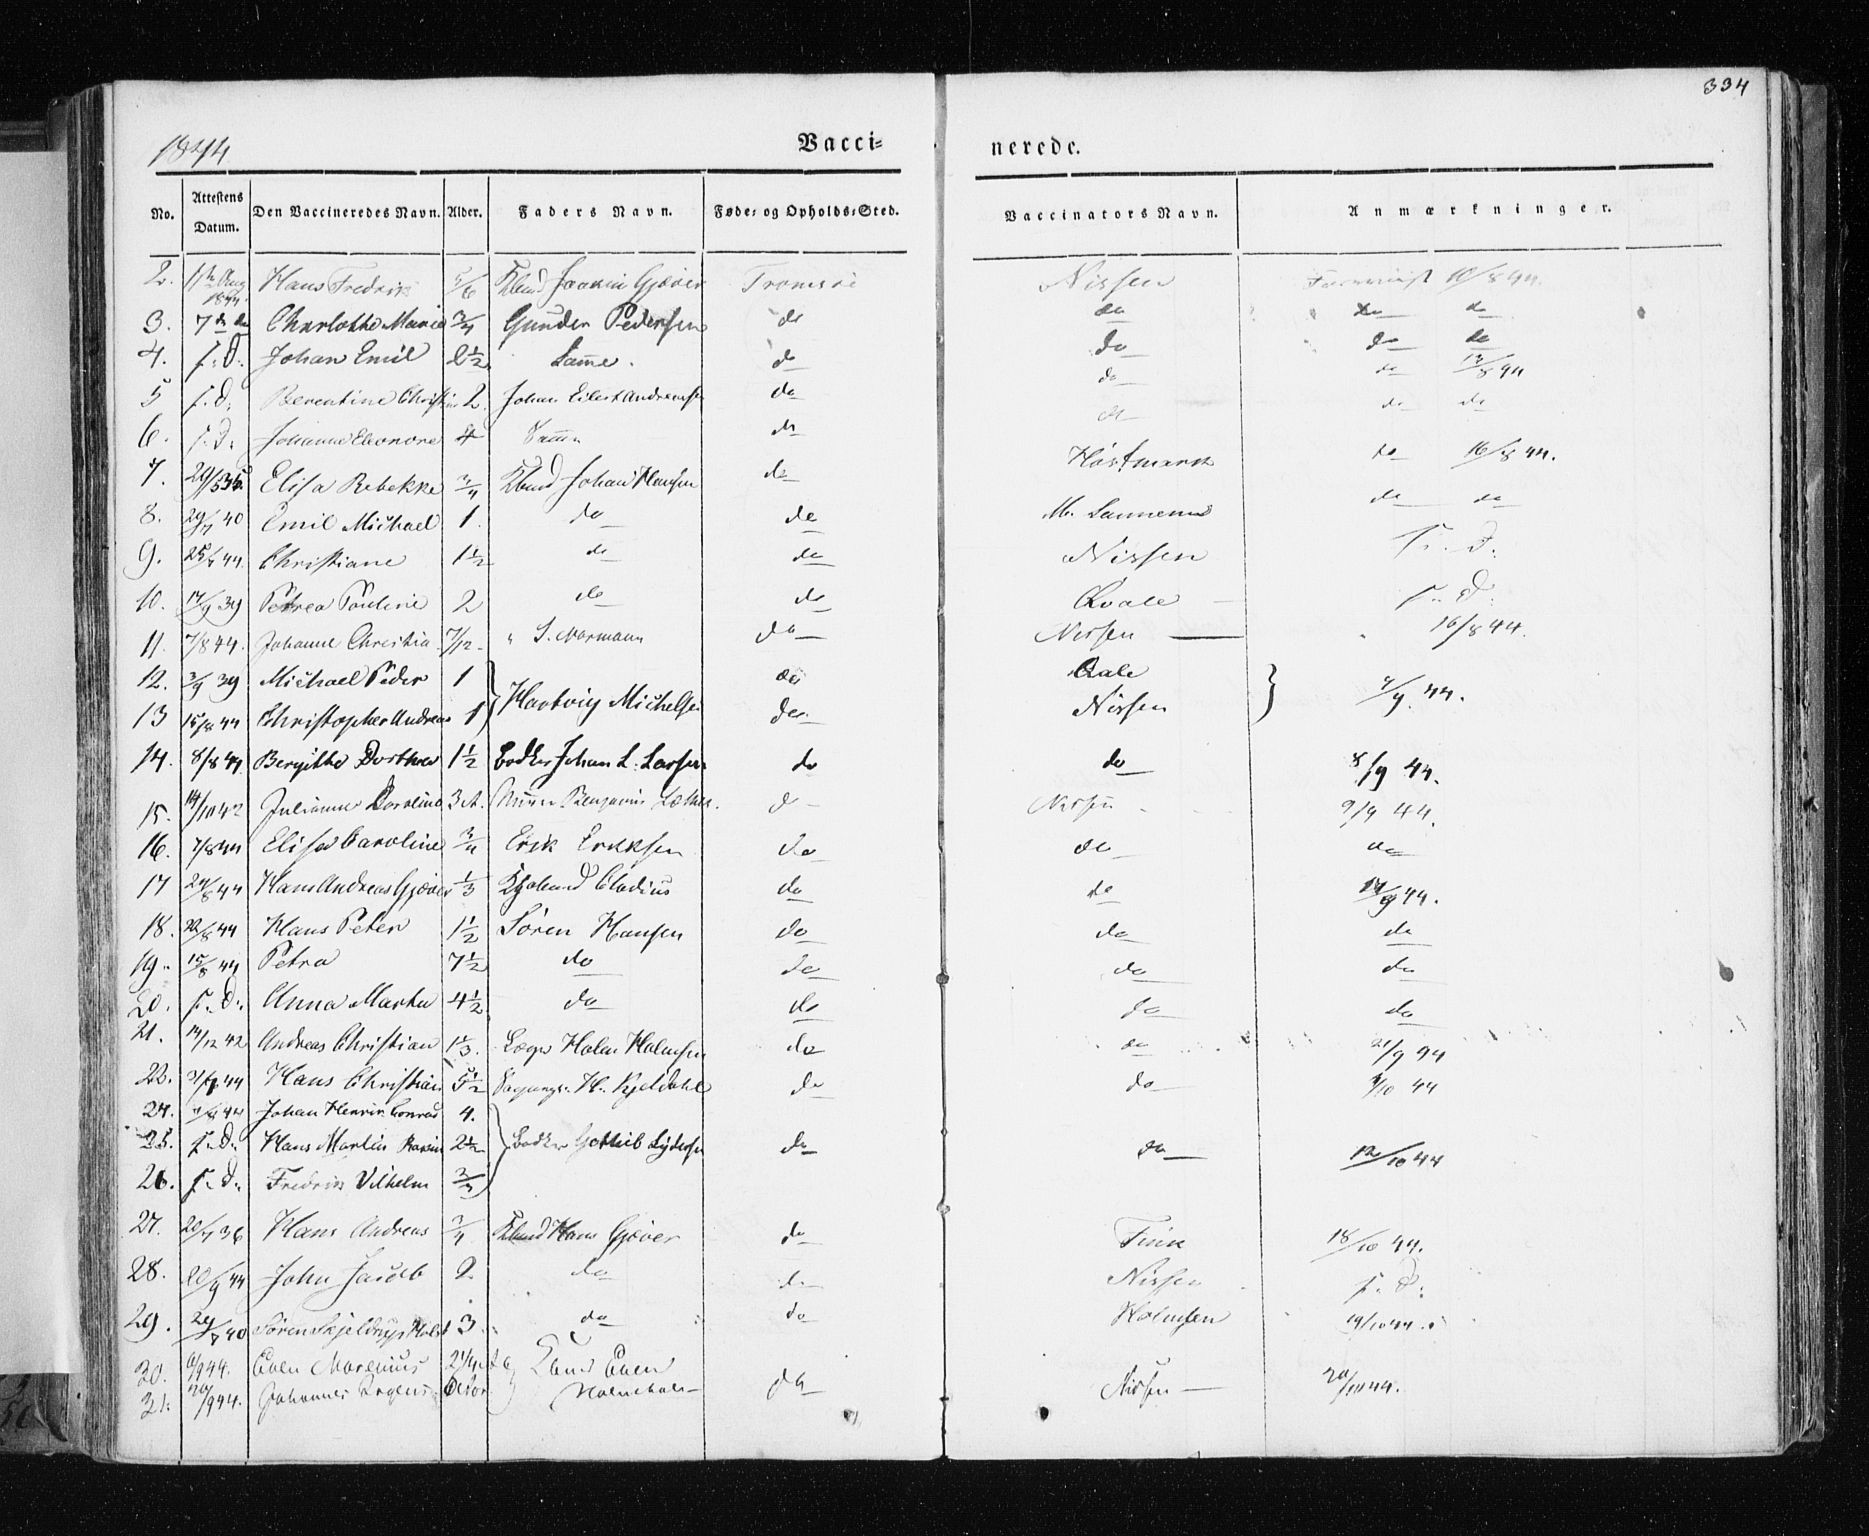 334
1844
Vacci- nerede.
No. Attestens Datum. Den Vaccineredes Navn. Alder. Faders Navn. Føde- og Opholds-Sted. Vaccinators Navn. Anmærkninger.
2. 11te Aug 1844 Hans Fredrik 5/6 Kbmd Joakim Gjæver Tromsøe Nissen 10/8 44.
3. 7 do do Charlotte Marie 3/4 Gunder Pedersen do do do do
4. s. D. Johan Emil 2 1/2 Samme. do do do do
5 s. d. Berentine Christine 2. Johan Eilert Andreasen do do do 13/8 44
6. s. D. Johanne Eleonore 4 Samme do do do do
7. 29/5 35. Elisa Rebekke 3/4 Kbmd Johan Hansen do Høstmark do 16/8 44.
8. 29/7 40 Emil Michael 1. do do do do
9. 25/7 44 Christiane 1 1/2 do do Nissen s. D.
10. 17/9 39 Petrea Pauline 2 do do Qvale s. D.
11. 7/8 44. Johanne Christia. 7/12 " S. Normann do Nissen 16/8 44.
12. 3/9 39 Michael Peder 1 Hartvig Michelsen do Qale
13 15/8 44 Christopher Andreas 1 do. Nissen 7/9. 44.
14. 8/8 44 Bergitte Dorthea 1 1/2 Bødker Johan L. Larsen do do 8/9 44.
15. 14/10 42 Julianne Caroline 3 A. Benjamin do Nissen 9/9 44.
16. 7/8 44 Elisa Caroline 3/4 Erik Erikksen do do do
17 24/8 44 Hans Andreas Gjæver 1/3 Kjøbmd Cladius do do 14/9 44.
18. 22/8 44 Hans Peter 1 1/2 Søren Hansen do do do
19. 15/8 44 Petra 7 1/2 do do do do
20. s. d. Anna Martha 4 1/2 do do do do
21. 14/12 42 Andreas Christian 1 1/3. Læge Holm Holmsen do do 21/9 44
22. 31/7 44 Hans Christian 5 1/2 H. Kjeldahl do do 3/10 44
24. 7/8 44 Johan Henrik Conrad 4.
25. s. D. Hans Martin 2 1/2 Bødker Gottlieb Lydersen do do 12/10 44
26. s. d. Fredrik Vilhelm 3/4
27. 20/7 36 Hans Andreas 3/4 Kbmd Hans Gjæver do Fink 18/10 44.
28. 20/9 44 John Jacob 2 do do Nissen s. D.
29. 29/7 40 Søren Skjeldrup Holst 3 do do Holmsen 19/10 44.
30. 6/9 44. Even Marenius 2 1/4 Kbmd Even
31. 20/9 44. Johannes Holmboe do Nissen 20/10 44.